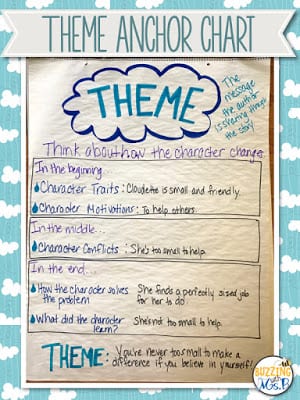 THEME ANCHOR CHART
THEME
The
message
the author
is sharing through
the story
Think about how the character changes
In the beginning...
Character Traits: Cloudette is small and friendly.
Character Motivations: To help others.
In the middle...
Character Conflicts: She's too small to help.
In the end...
How the character solves
the problem
She finds a perfectly sized job
for her to do.
What did the character
learn?
She's not too small to help.
THEME: You're never too small to make a
difference if you believe in yourself!
BUZZING
with
Ms. B